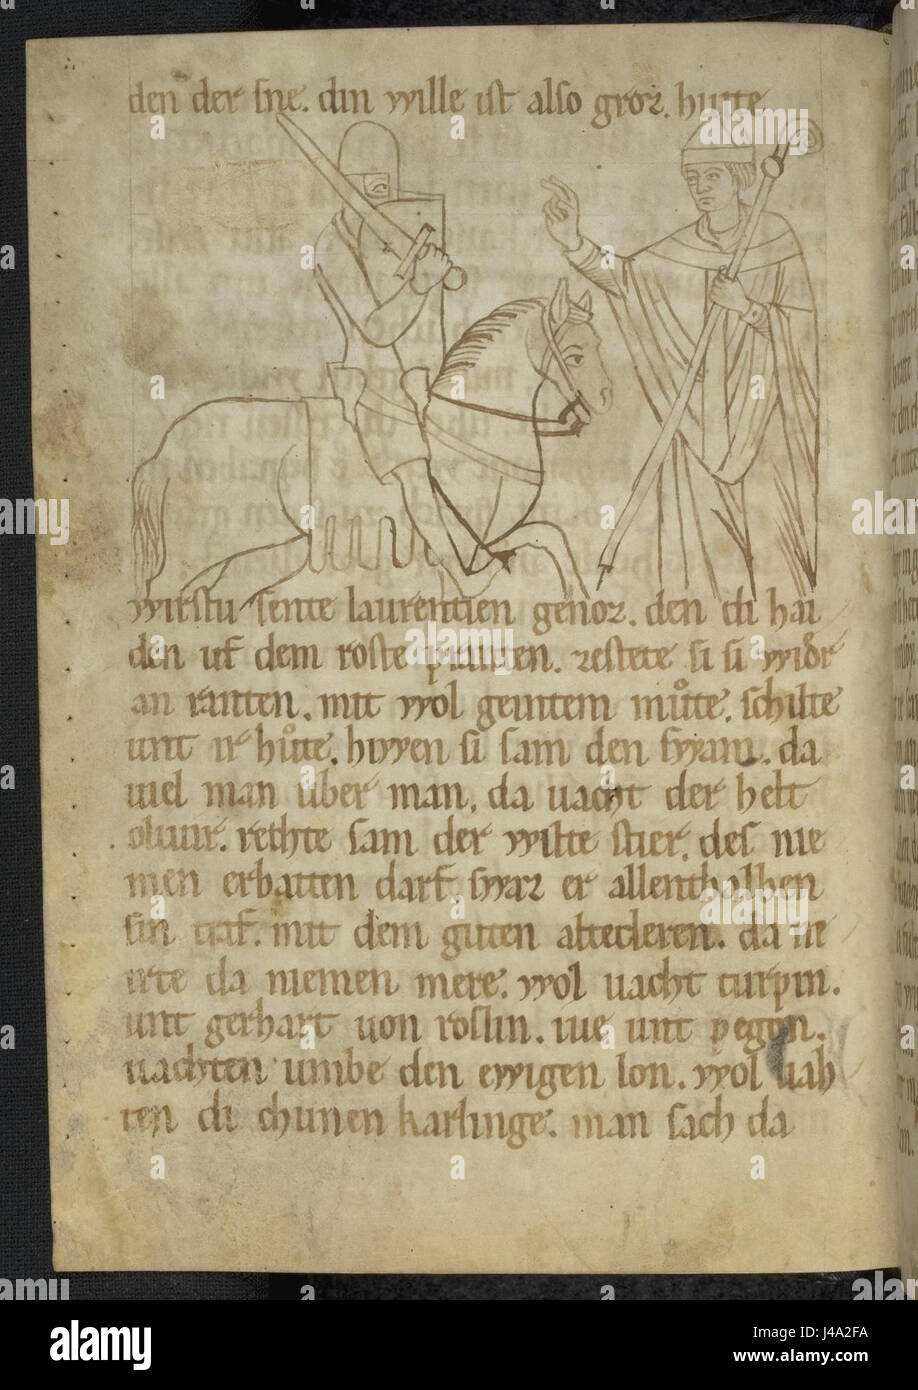 den der sne. din wille ist also groz. hutte
wirstu sente laurentien genoz. den di hai
den uf dem roste prunten. restete si si wider
an ranten. mit wol geuttem můte. schilte
unt ir hůte. hiwen si sam den swam. da
uiel man uber man, da uacht der helt
oliuir. rechte sam der wilte stier. des nie
men erbatten darf. swaz er allenthalben
sin traf. mit dem guten alteclerem. da ne
irte da niemen mere. wol uacht turpin.
unt gerhart uon roslin. iue unt pegon.
uachten umbe den ewigen lon. wol uah
ten di chunen karlinge. man sach da
alamy
Image ID: J4A2FA
www.alamy.com